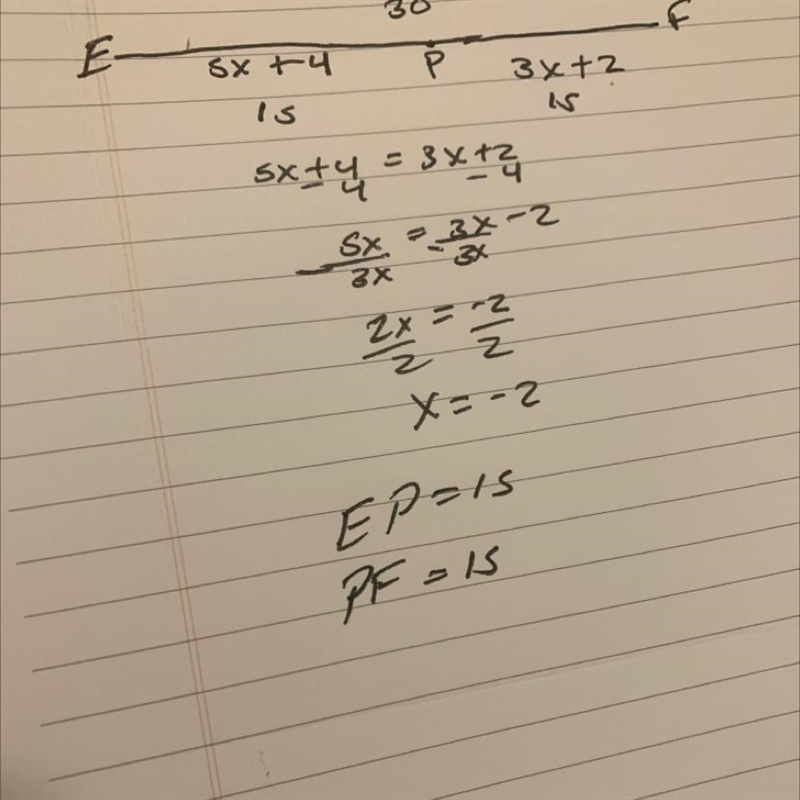 30
E F
5x + 4 P 3x + 2
15 15
5x + 4 = 3x + 2
- 4 - 4
5x = 3x - 2
- 3x - 3x
2x = -2
2 2
x = -2
EP = 15
PF = 15